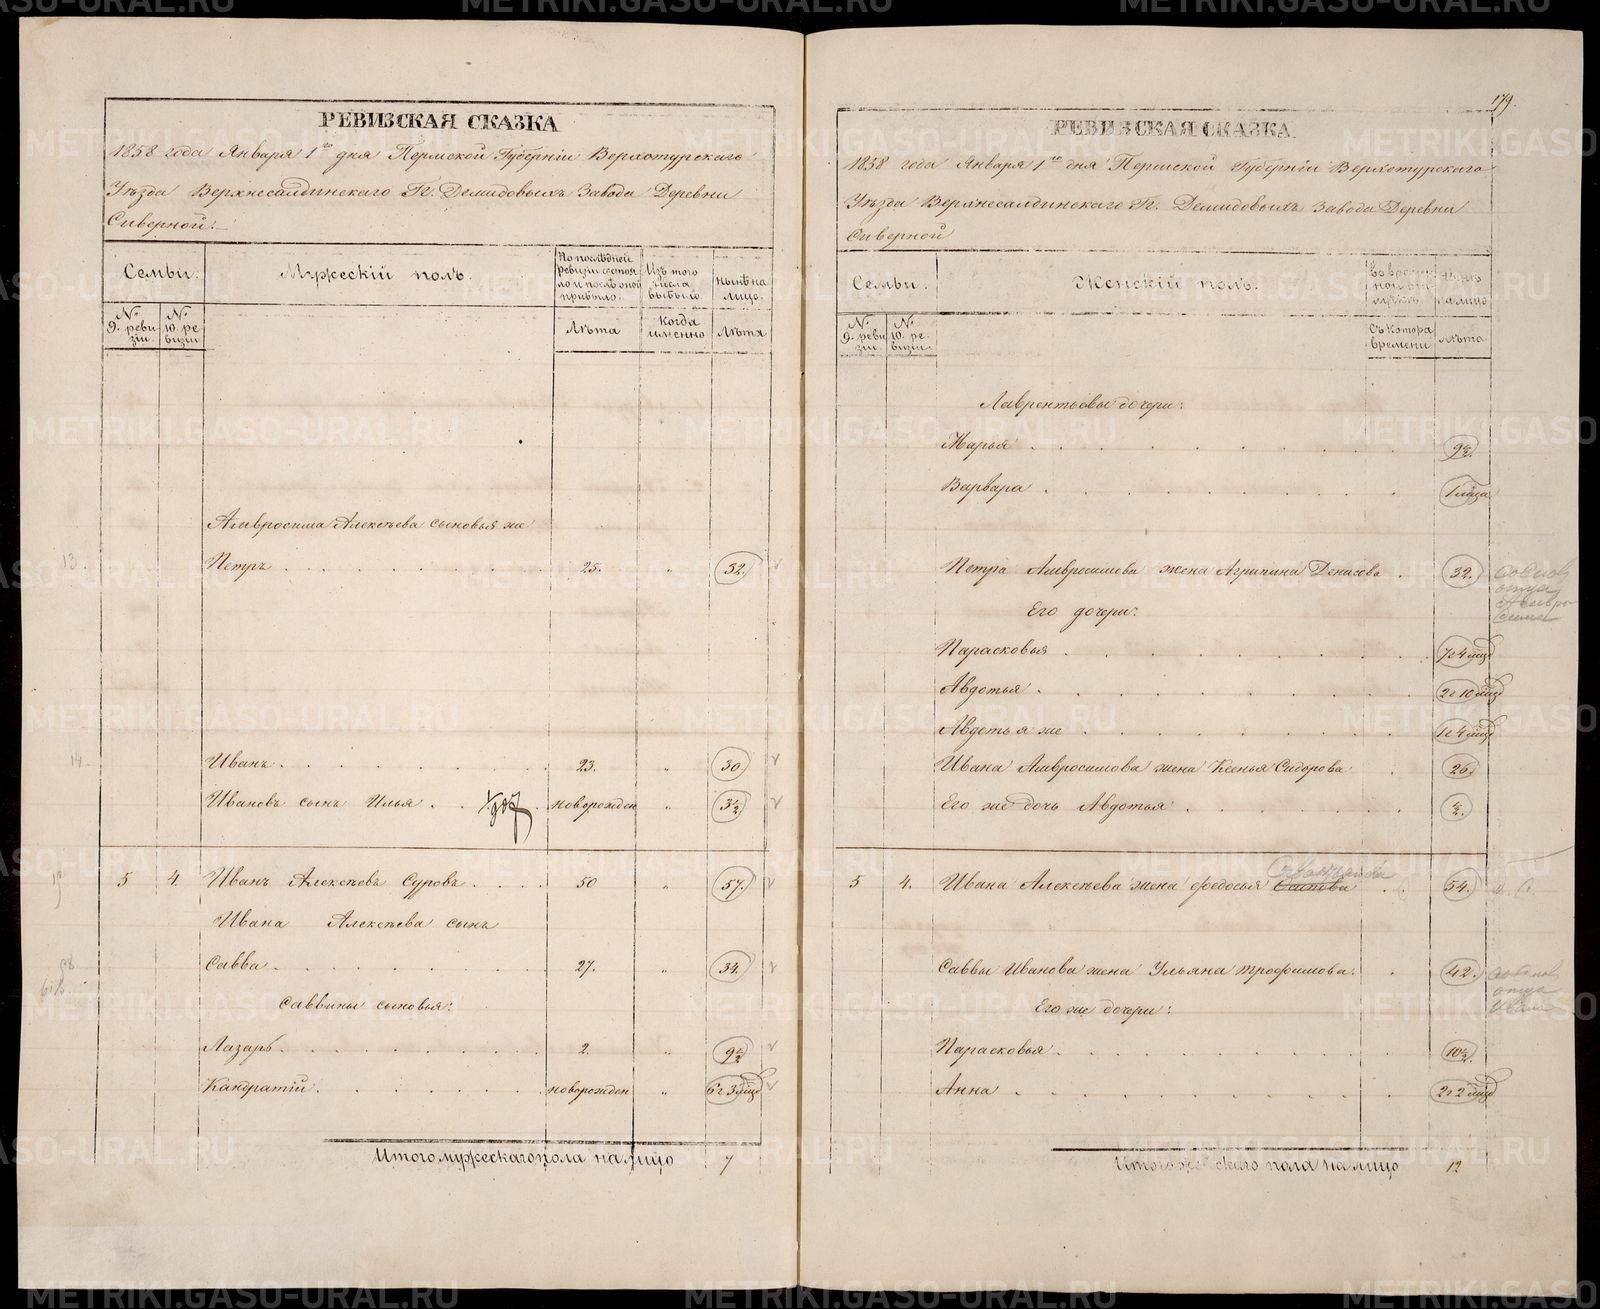 РЕВИЗСКАЯ СКАЗКА
1858 года Января 1го дня Пермской Губернiи Верхотурскаго
Уѣзда Верхнесалдинскаго Гг. Демидовыхъ Завода Деревни
Сиверной:
Семьи.
Мужескiй полъ.
По последней ревизiи состояло и послѣ оной прибыло.
Изъ того числа выбыло.
Нынѣ на лицо.
№ 9. ревизiи.
№ 10. ревизiи
Лѣта
Когда именно
Лѣта
Амвросима Алексѣева сыновья же
13. Петръ 25. „ 32.
14. Иванъ 23. „ 30
Ивановъ сынъ Илья новорожден „ 3½
5 4. Иванъ Алексѣевъ Суровъ 50 „ 57.
Ивана Алексѣева сынъ
Савва 27. „ 34.
Саввины сыновья:
Лазарь 2. „ 9½
Кандратiй новорожден „ 6г 3 мцд
Итого мужескаго пола на лицо 7
179.
РЕВИЗСКАЯ СКАЗКА
1858 года Января 1го дня Пермской Губернiи Верхотурскаго
Уѣзда Верхнесалдинскаго Гг. Демидовыхъ Завода Деревни
Сиверной
Семьи.
Женскiй полъ.
№ 9. ревизiи.
№ 10. ревизiи.
Съ котора времени
лѣта
Лаврентьевы дочери:
Марья 9½.
Варвара
Петра Амвросимова жена Агрипина Денисова 32.
Его дочери:
Парасковья 7г 4 мцд
Авдотья 2г 10 мцд
Авдотья же 1г 4 мцд
Ивана Амвросимова жена Ксенья Сидорова 26
Его же дочь Авдотья ½.
5 4. Ивана Алексѣева жена Федосья 54.
Саввы Иванова жена Ульяна Трофимова. 42.
Его же дочери:
Парасковья 10½.
Анна 2г 2 мцд
Итого женскаго пола на лицо 12
METRIKI.GASO-URAL.RU